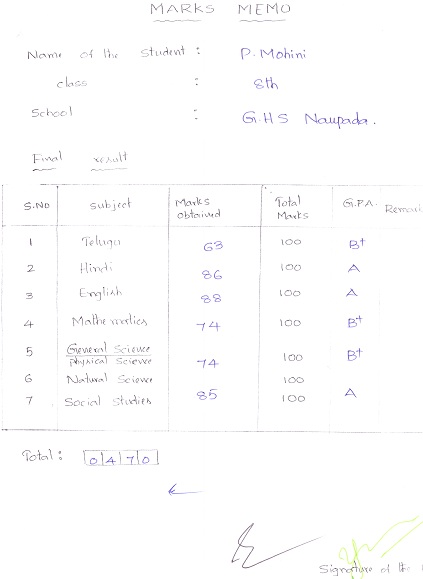 MARKS MEMO
Name of the Student : P. Mohini
class : 8th
School : G.H.S Naupada.
Final result
S.NO Subject Marks obtained Total Marks G.P.A. Remar
1 Telugu 63 100 B+
2 Hindi 86 100 A
3 English 88 100 A
4 Mathematics 74 100 B+
5 General Science
Physical Science 74 100 B+
6 Natural Science 100
7 Social Studies 85 100 A
Total : 0470
Signature of the